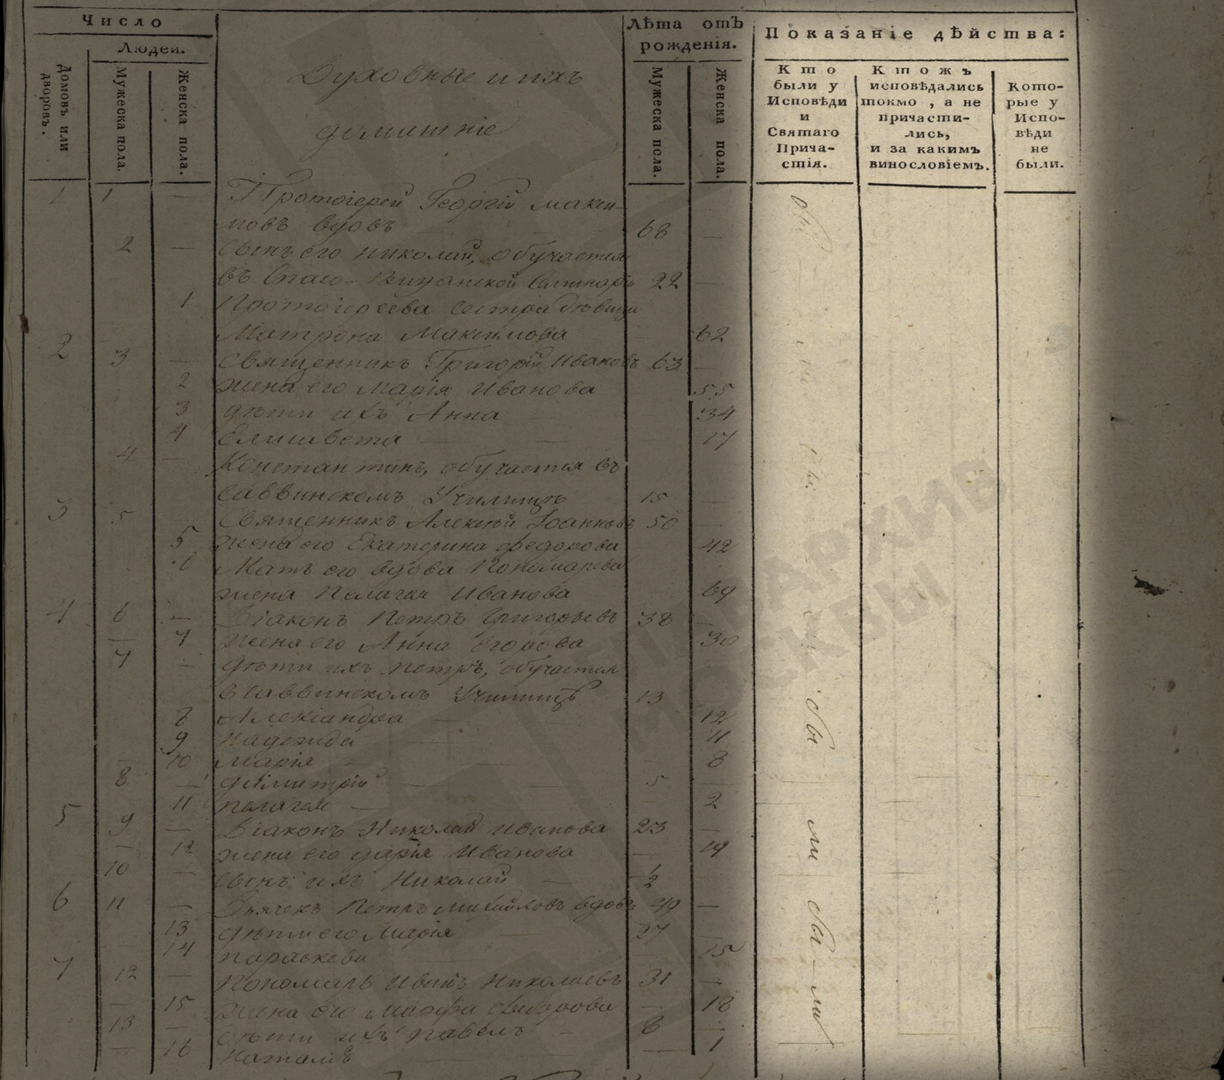 Число
Людей.
Домовъ или дворовъ.
Мужеска пола.
Женска пола.
Духовные и ихъ
домашніе
Лѣта отъ
рожденія.
Мужеска пола.
Женска пола.
Показаніе дѣйства:
Кто были у Исповѣди и Святаго Прича-стія.
Ктожъ исповѣдались токмо, а не причасти-лись, и за какимъ винословіемъ.
Кото-рые у Испо-вѣди не были.
1 1 — Протоіерей Георгій Макси-
мовъ вдовъ 68 —
2 — Сынъ его Николай, обучается
въ Спасо-Виѳанской Семинаріи 22 —
1 Протоіереева сестра дѣвица
Матрона Максимова 62
2 3 — Священникъ Григорій Ивановъ 63 —
2 Жена его Марія Иванова 55
3 Дѣти ихъ Анна 34
4 Елисавета — 17
4 — Константинъ, обучается въ
Саввинскомъ Училищѣ 15 —
3 5 Священникъ Алексѣй Іоанновъ 50 —
5 Жена его Екатерина Федорова 42
6 Мать его вдова Пономарева
жена Пелагея Иванова 69
4 6 — Діаконъ Петръ Григорьевъ 38 —
7 Жена его Анна Егорова 30
7 — Дѣти ихъ Петръ, обучается
въ Саввинскомъ Училищѣ 13
8 Александра — 12
9 Надежда — 11
10 Марія — 8
8 — Димитрій — 5
11 Пелагея — 2
5 9 — Діаконъ Николай Иванова 23 —
12 Жена его Марія Иванова 19
10 — Сынъ ихъ Николай —
6 11 — Дьячекъ Петръ Михайловъ вдовъ 49 —
13 Дѣти его Марія 27
14 Параскева 15
7 12 — Пономарь Иванъ Николаевъ 31 —
15 Жена его Марфа 18
13 — Дѣти ихъ Павелъ 8
16 Наталія — 1
бы
ли
бы
ли
бы—ли
АРХИВ
МОСКВЫ